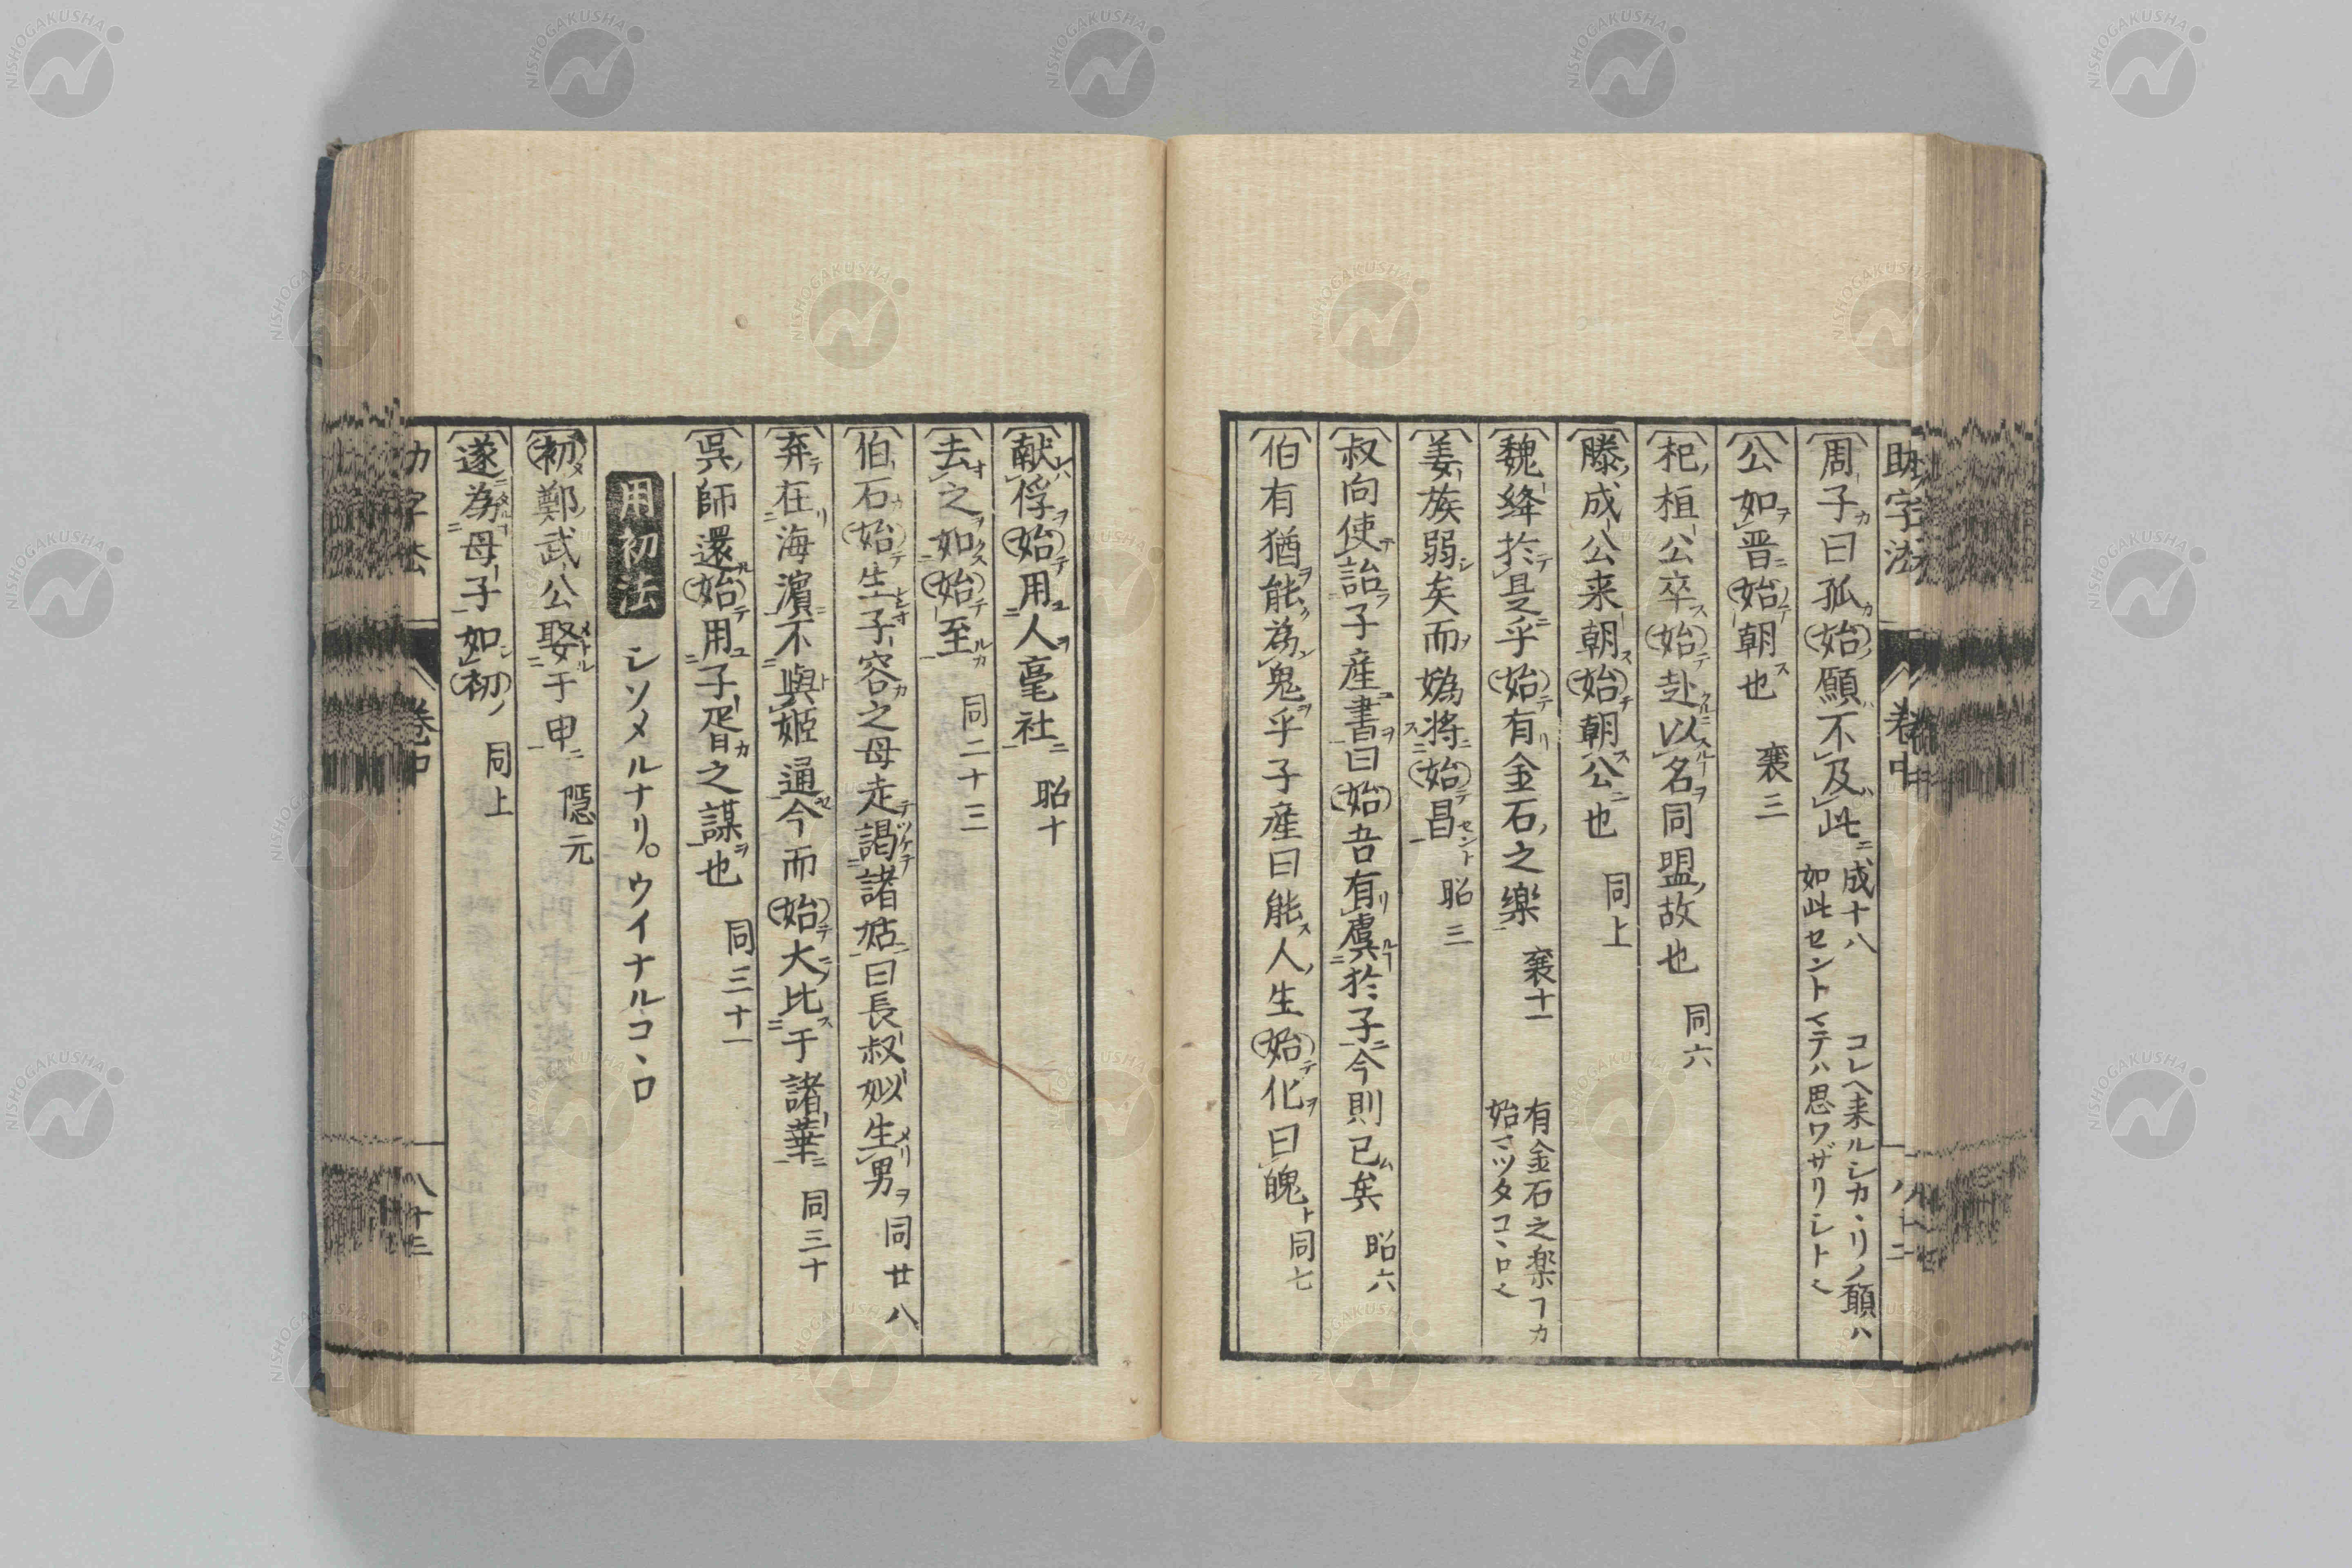 助字法 卷中
周子曰孤始願不及此 成十八 コレヘ来ルシカヽリノ願ハ
如此セントイテハ思ワザリシト也
公如晋始朝也 襄三
杞桓公卒始赴以名同盟故也 同六
滕成公来朝始朝公也 同上
魏絳於是乎始有金石之樂 襄十一 有金石之楽フカ
始マツタコヽロ也
姜族弱矣而媯将始昌 昭三
叔向使詒子産書曰始吾有虞於子今則已矣 昭六
伯有猶能為鬼乎子産曰能人生始化曰魄 同七
献俘始用人亳社 昭十
去之如始至 同二十三
伯石始生子容之母走謁諸姑曰長叔姒生男 同廿八
弃在海濱不與姫通今而始大比于諸華 同三十
呉師還始用子胥之謀也 同三十一
用初法 シソメルナリ。ウイナルコヽロ
初鄭武公娶于申 隠元
遂為母子如初 同上
卷中 八十三
NISHOGAKUSHA